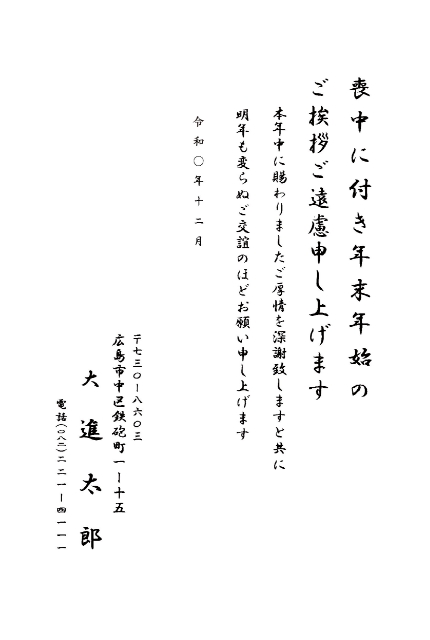 喪中に付き年末年始の
ご挨拶ご遠慮申し上げます
本年中に賜わりましたご厚情を深謝致しますと共に
明年も変らぬご交誼のほどお願い申し上げます
令和〇年十二月
〒七三〇ー八六〇三
広島市中区鉄砲町一ー十五
大進太郎
電話(〇八二)二二一ー四一一一